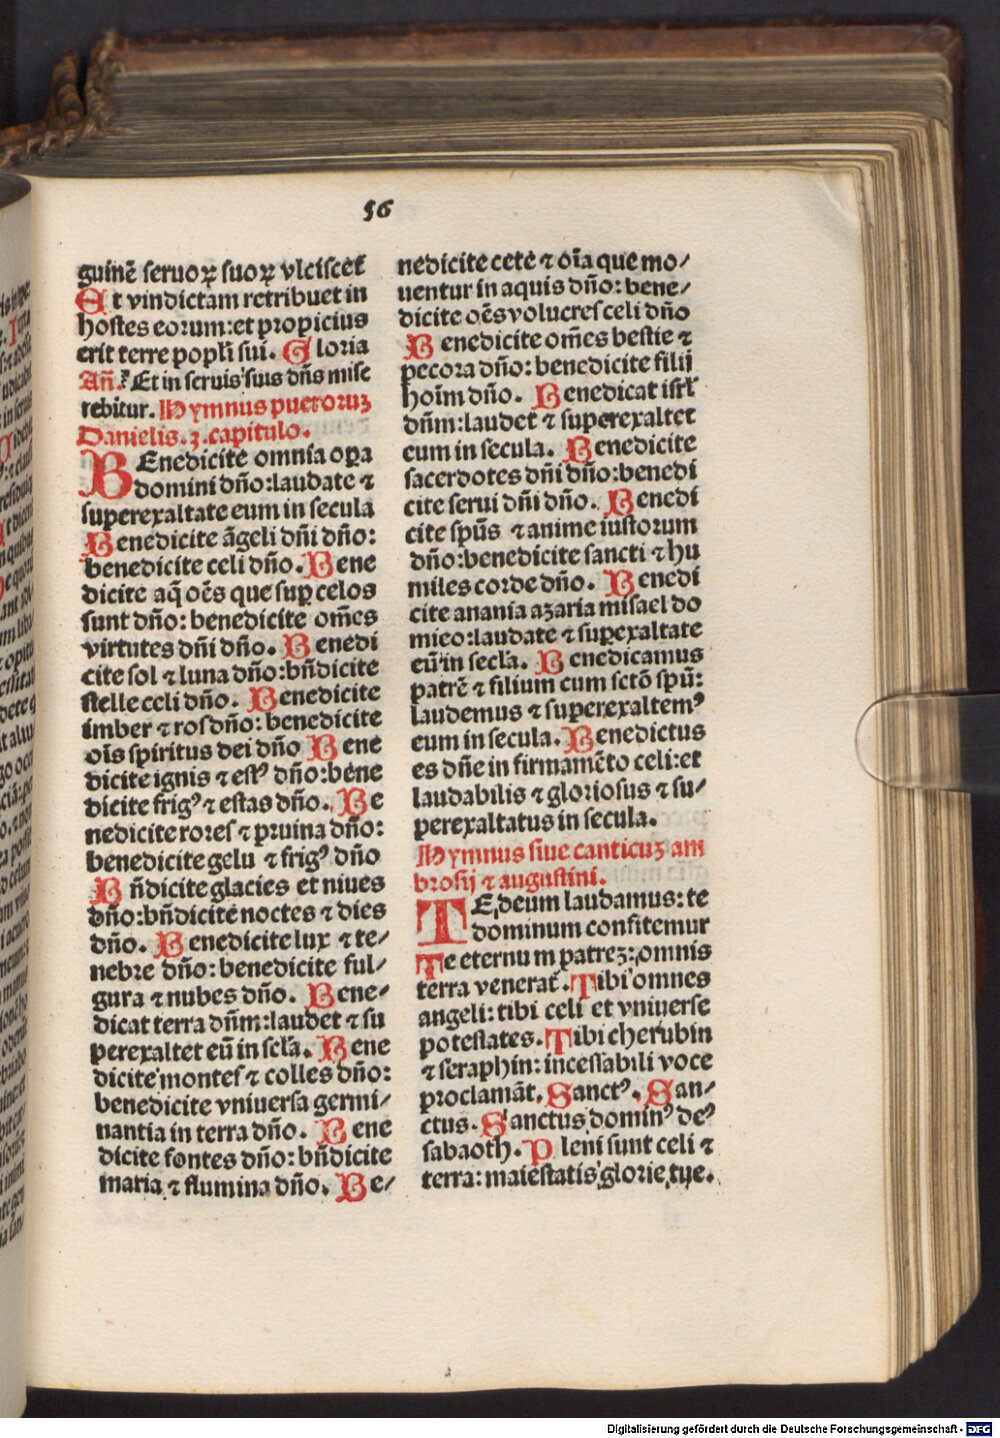 56
guinē seruoꝝ suoꝝ vlciscet᷑
Et vindictam retribuet in
hostes eorum: et propicius
erit terre popli sui. Gloria
Añ. Et in seruis suis dn̄s mise
rebitur. Hymnus pueroruꝫ
Danielis. 3. capitulo.
BEnedicite omnia oꝑa
domini dño: laudate ⁊
superexaltate eum in secula
Benedicite āgeli dn̄i dño:
benedicite celi dño. Bene
dicite aq̄ oēs que suꝑ celos
sunt dño: benedicite om̄es
virtutes dn̄i dño. Benedi
cite sol ⁊ luna dño: bn̄dicite
stelle celi dño. Benedicite
imber ⁊ ros dño: benedicite
oīs spiritus dei dño Bene
dicite ignis ⁊ estꝰ dño: bene
dicite frigꝰ ⁊ estas dño. Be
nedicite rores ⁊ pruina dño:
benedicite gelu ⁊ frigꝰ dño
Bn̄dicite glacies et niues
dño: bn̄dicite noctes ⁊ dies
dño. Benedicite lux ⁊ te/
nebre dño: benedicite ful/
gura ⁊ nubes dño. Bene/
dicat terra dn̄m: laudet ⁊ su
perexaltet eū in scła. Bene
dicite montes ⁊ colles dño:
benedicite vniuersa germi/
nantia in terra dño. Bene
dicite fontes dño: bn̄dicite
maria ⁊ flumina dño. Be/
nedicite cete ⁊ oīa que mo/
uentur in aquis dño: bene/
dicite oēs volucres celi dño
Benedicite om̄es bestie ⁊
pecora dño: benedicite filij
hoīm dño. Benedicat isrł
dn̄m: laudet ⁊ superexaltet
eum in secula. Benedicite
sacerdotes dn̄i dño: benedi
cite serui dn̄i dño. Benedi
cite spūs ⁊ anime iustorum
dño: benedicite sancti ⁊ hu
miles corde dño. Benedi
cite anania aꝫaria misael do
mieo: laudate ⁊ superexaltate
eū in secła. Benedicamus
patrē ⁊ filium cum sctō spū:
laudemus ⁊ superexaltemꝰ
eum in secula. Benedictus
es dn̄e in firmamēto celi: et
laudabilis ⁊ gloriosus ⁊ su/
perexaltatus in secula.
Hymnus siue canticuꝫ am
brosij ⁊ augustini.
TE deum laudamus: te
dominum confitemur
Te eternum patreꝫ: omnis
terra venerat᷑. Tibi omnes
angeli: tibi celi et vniuerse
potestates. Tibi cherubin
⁊ seraphin: incessabili voce
proclamāt. Sanctꝰ. San/
ctus. Sanctus dominꝰ deꝰ
sabaoth. Pleni sunt celi ⁊
terra: maiestatis glorie tue.
Digitalisierung gefördert durch die Deutsche Forschungsgemeinschaft - DFG